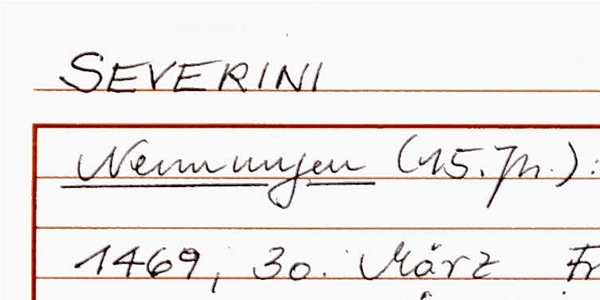 SEVERINI
Nennungen (15. Jh.):
1469, 30. März Fr